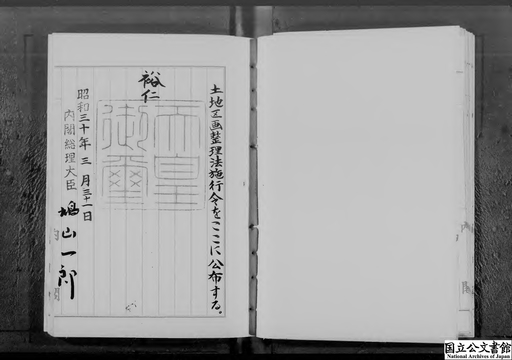 土地区画整理法施行令をここに公布する。
裕仁
天皇御璽
昭和三十年三月三十一日
内閣総理大臣 鳩山一郎
国立公文書館
National Archives of Japan